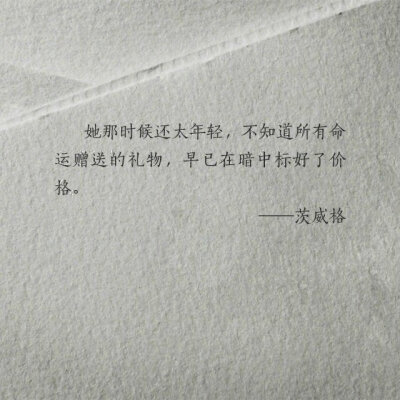 她那时候还太年轻，不知道所有命
运赠送的礼物，早已在暗中标好了价
格。
——茨威格